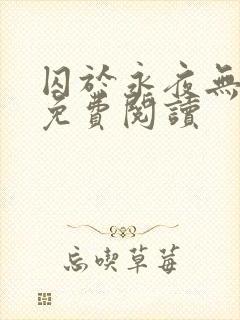 囚於永夜無
免費閱讀
忘喫草莓